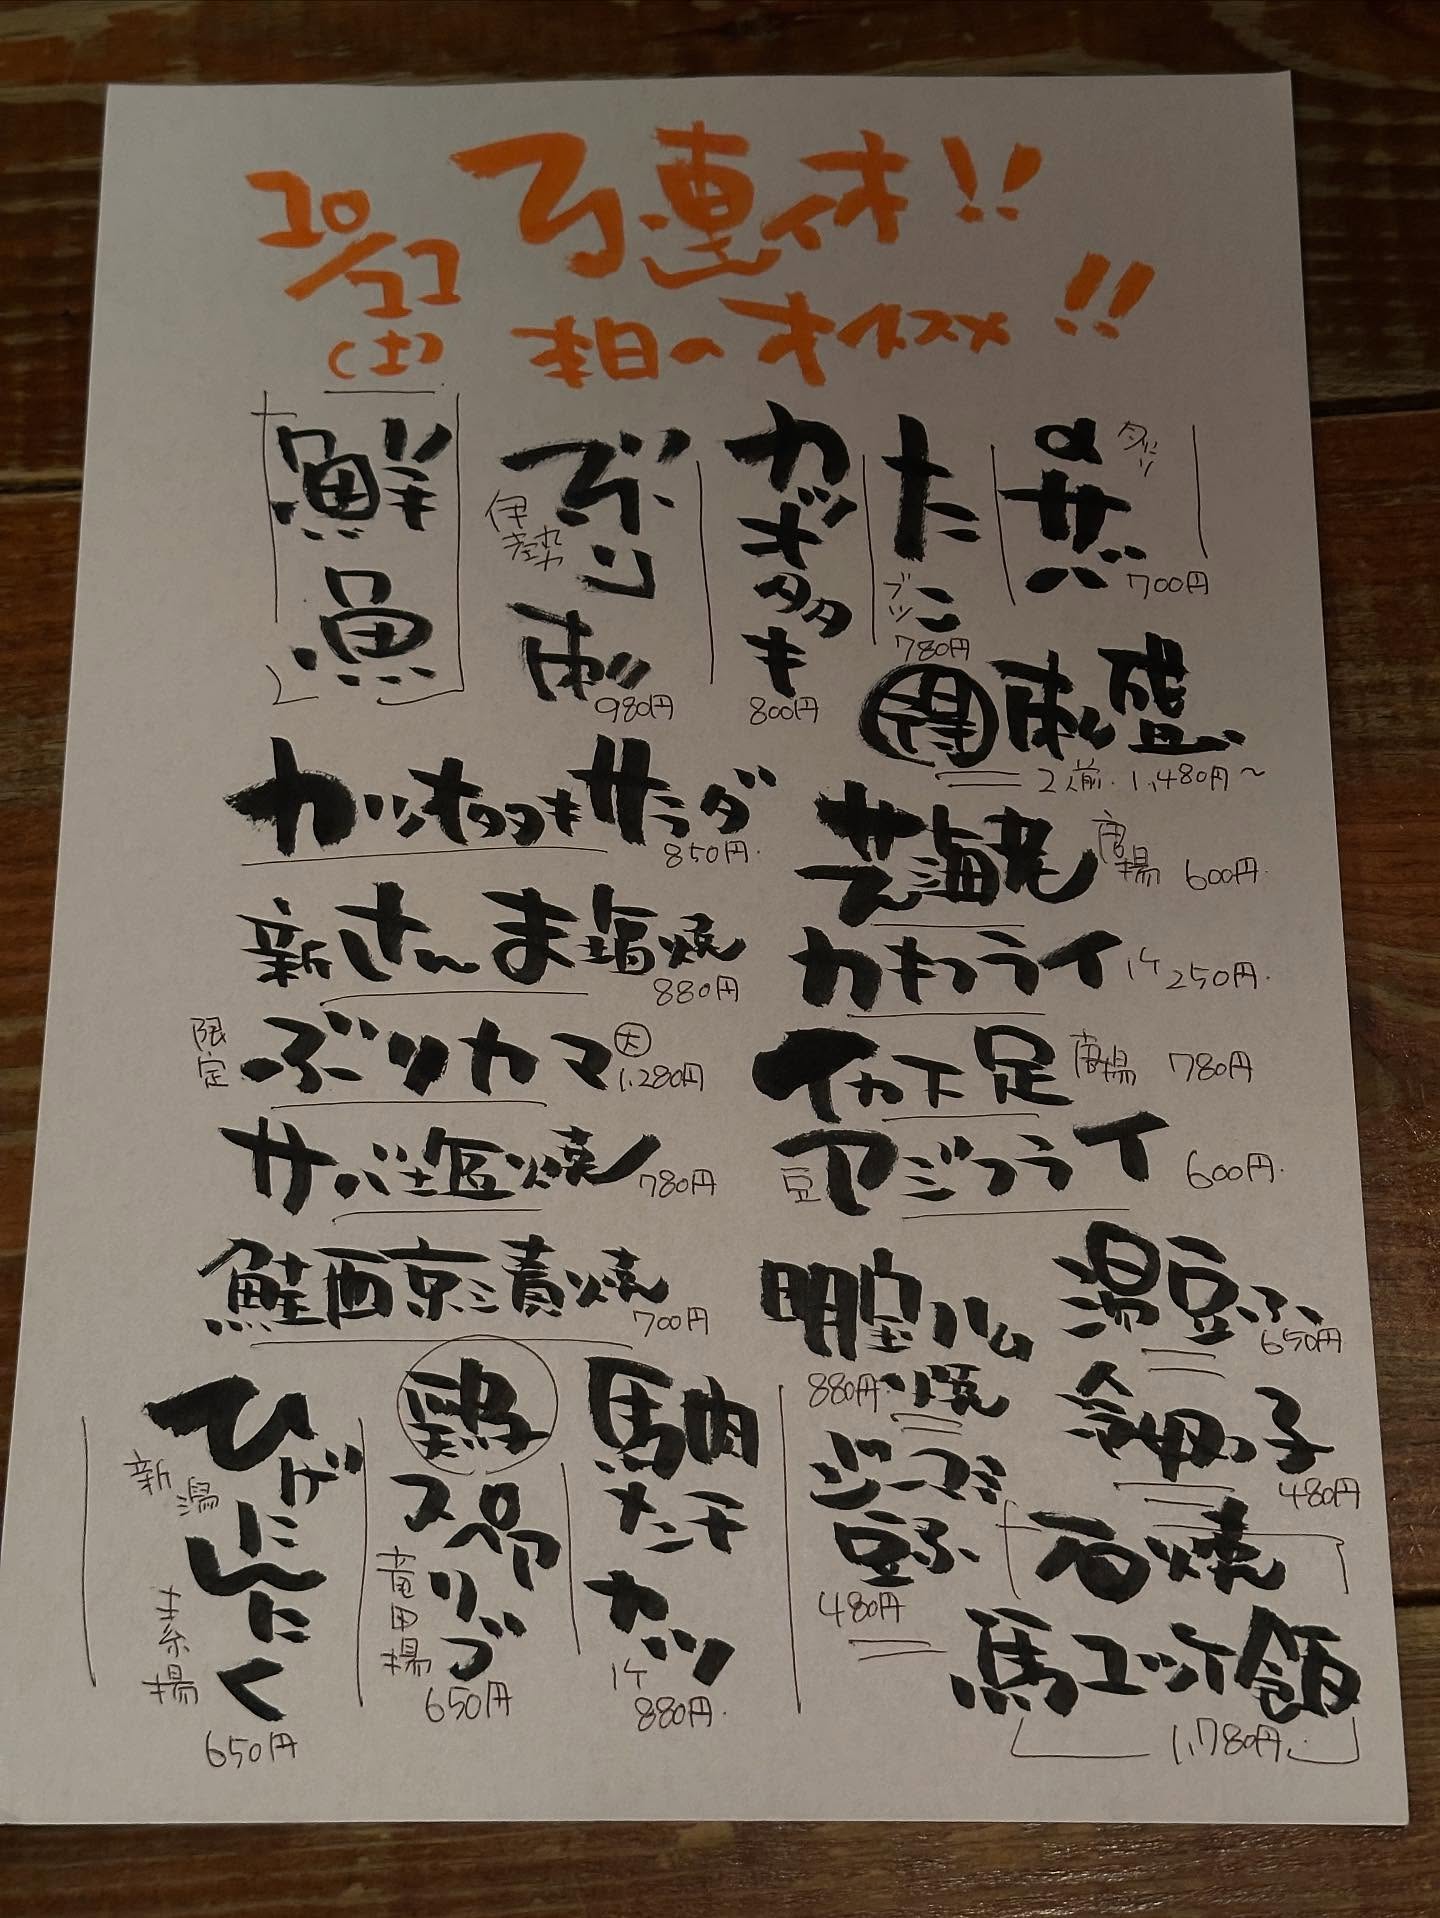 10/11
(土)
3連休!!
本日のオススメ!!
鮮魚
ぶり刺
伊勢
980円
カツオタタキ
800円
たこ
ブツ
780円
〆サバ
700円
得 刺盛
2人前 1,480円〜
カツオタタキサラダ
850円
芝海老 唐揚
600円
新さんま塩焼
880円
カキフライ 1ケ
250円
限定 ぶりカマ 大
1,280円
イカ下足 唐揚
780円
サバ塩焼
780円
豆アジフライ
600円
鮭西京漬焼
700円
明宝ハム焼
880円
湯豆ふ
650円
ひげにんにく
新潟
素揚
650円
鶏スペアリブ
竜田揚
650円
馬肉メンチカツ
1ケ
880円
ジーマミ豆ふ
480円
480円
石焼
馬ユッケ飯
1,780円